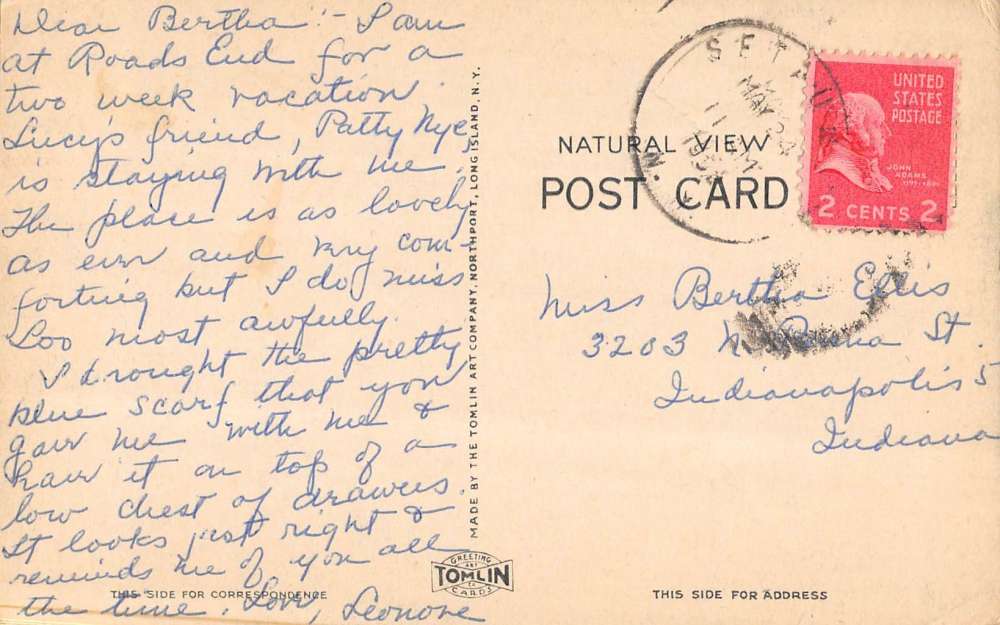 Dear Bertha:- I am
at Roads End for a
two week vacation.
Lucy's friend, Patty Nye,
is staying with me.
The place is as lovely
as ever and very com-
forting but I do miss
Loo most awfully.
I brought the pretty
blue scarf that you
gave me with me &
have it on top of a
low chest of drawers.
It looks just right &
reminds me of you all
the time. Love, Leonore
THIS SIDE FOR CORRESPONDENCE
MADE BY THE TOMLIN ART COMPANY, NORTHPORT, LONG ISLAND, N.Y.
GREETING
ART
TOMLIN
CARDS
NATURAL VIEW
POST CARD
SETAUKET
MAY 24
11
UNITED
STATES
POSTAGE
JOHN
ADAMS
2 CENTS 2
Miss Bertha Ellis
3203 N. St.
Indianapolis 5
Indiana
THIS SIDE FOR ADDRESS